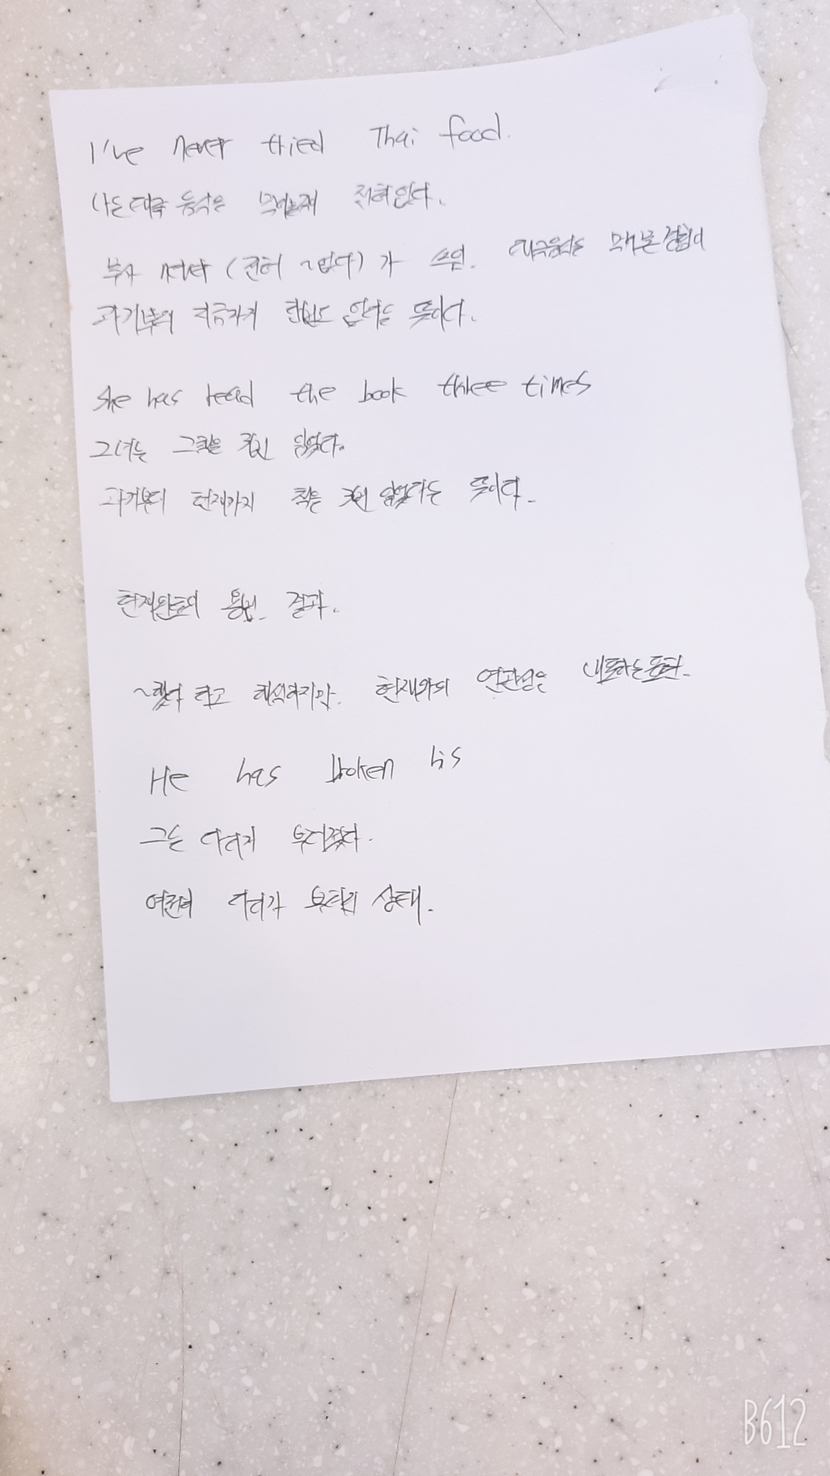 I've never tried Thai food.
나는 태국 음식은 먹어본적 전혀없다.
부사 never (전혀 ~없다) 가 쓰임. 태국음식을 먹어본 경험이
과거부터 지금까지 한번도 없다는 뜻이다.
She has read the book three times
그녀는 그책을 3번 읽었다.
과거부터 현재까지 책을 3번 읽었다는 뜻이다.
현재완료의 용법. 결과.
~했다 라고 해석하지만. 현재와의 연관성을
He has broken his
그는 다리가 부러졌다.
여전히 다리가 부러진 상태.
B612